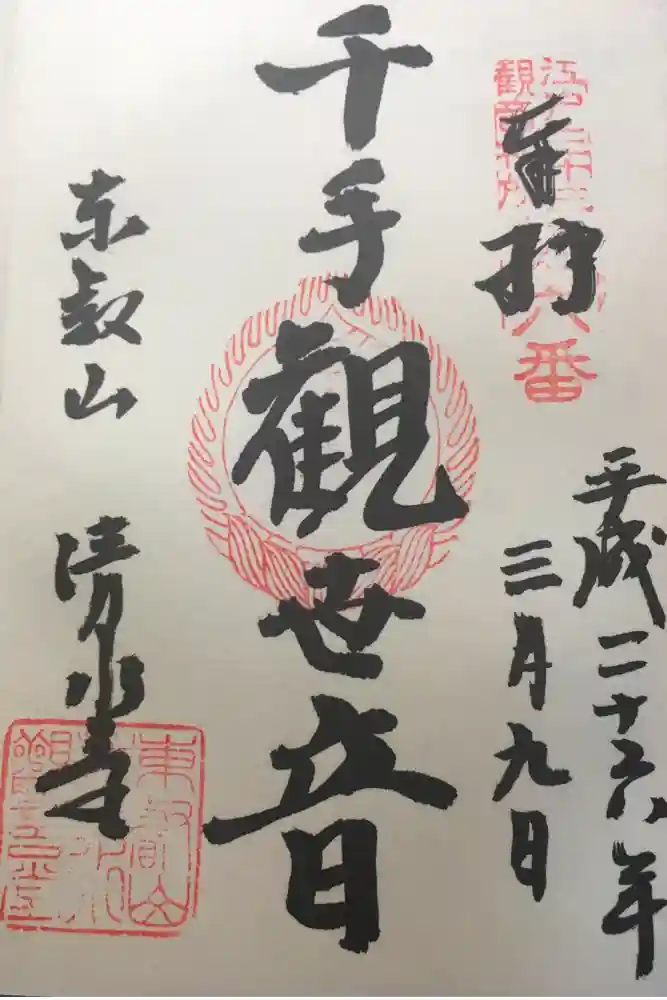 江戸三十三
観音札所
第六番
奉拝
平成二十六年
三月九日
千手観世音
東叡山 清水堂
東叡山
清水
観音堂